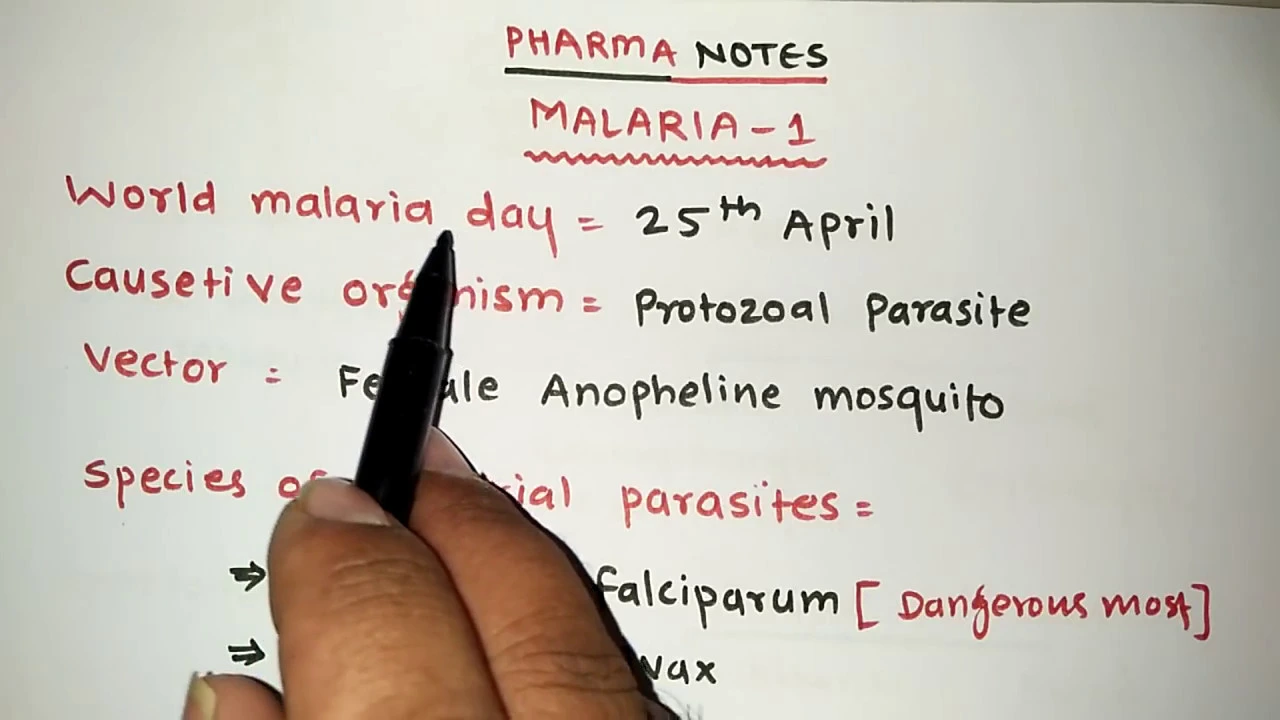 PHARMA NOTES
MALARIA - 1
World malaria day = 25th April
Causetive organism = Protozoal Parasite
Vector = Female Anopheline mosquito
Species parasites =
⇒ falciparum [Dangerous most]
⇒